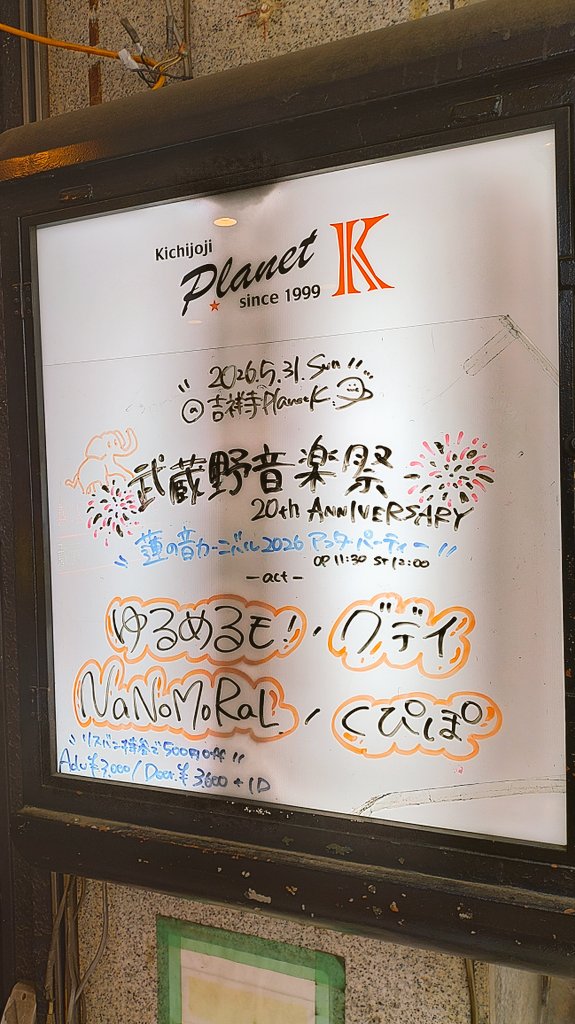 Kichijoji
Planet K
since 1999
2026.5.31.Sun
@吉祥寺Planet K
武蔵野音楽祭
20th ANNIVERSARY
蓮の音カーニバル2026 アフターパーティー
OP 11:30 ST 12:00
-act-
ゆるめるモ!/グデイ
NaNoMoRaL/くぴぽ
リストバンド持参で500円off
Adv ¥3,000/Door ¥3,600 +1D